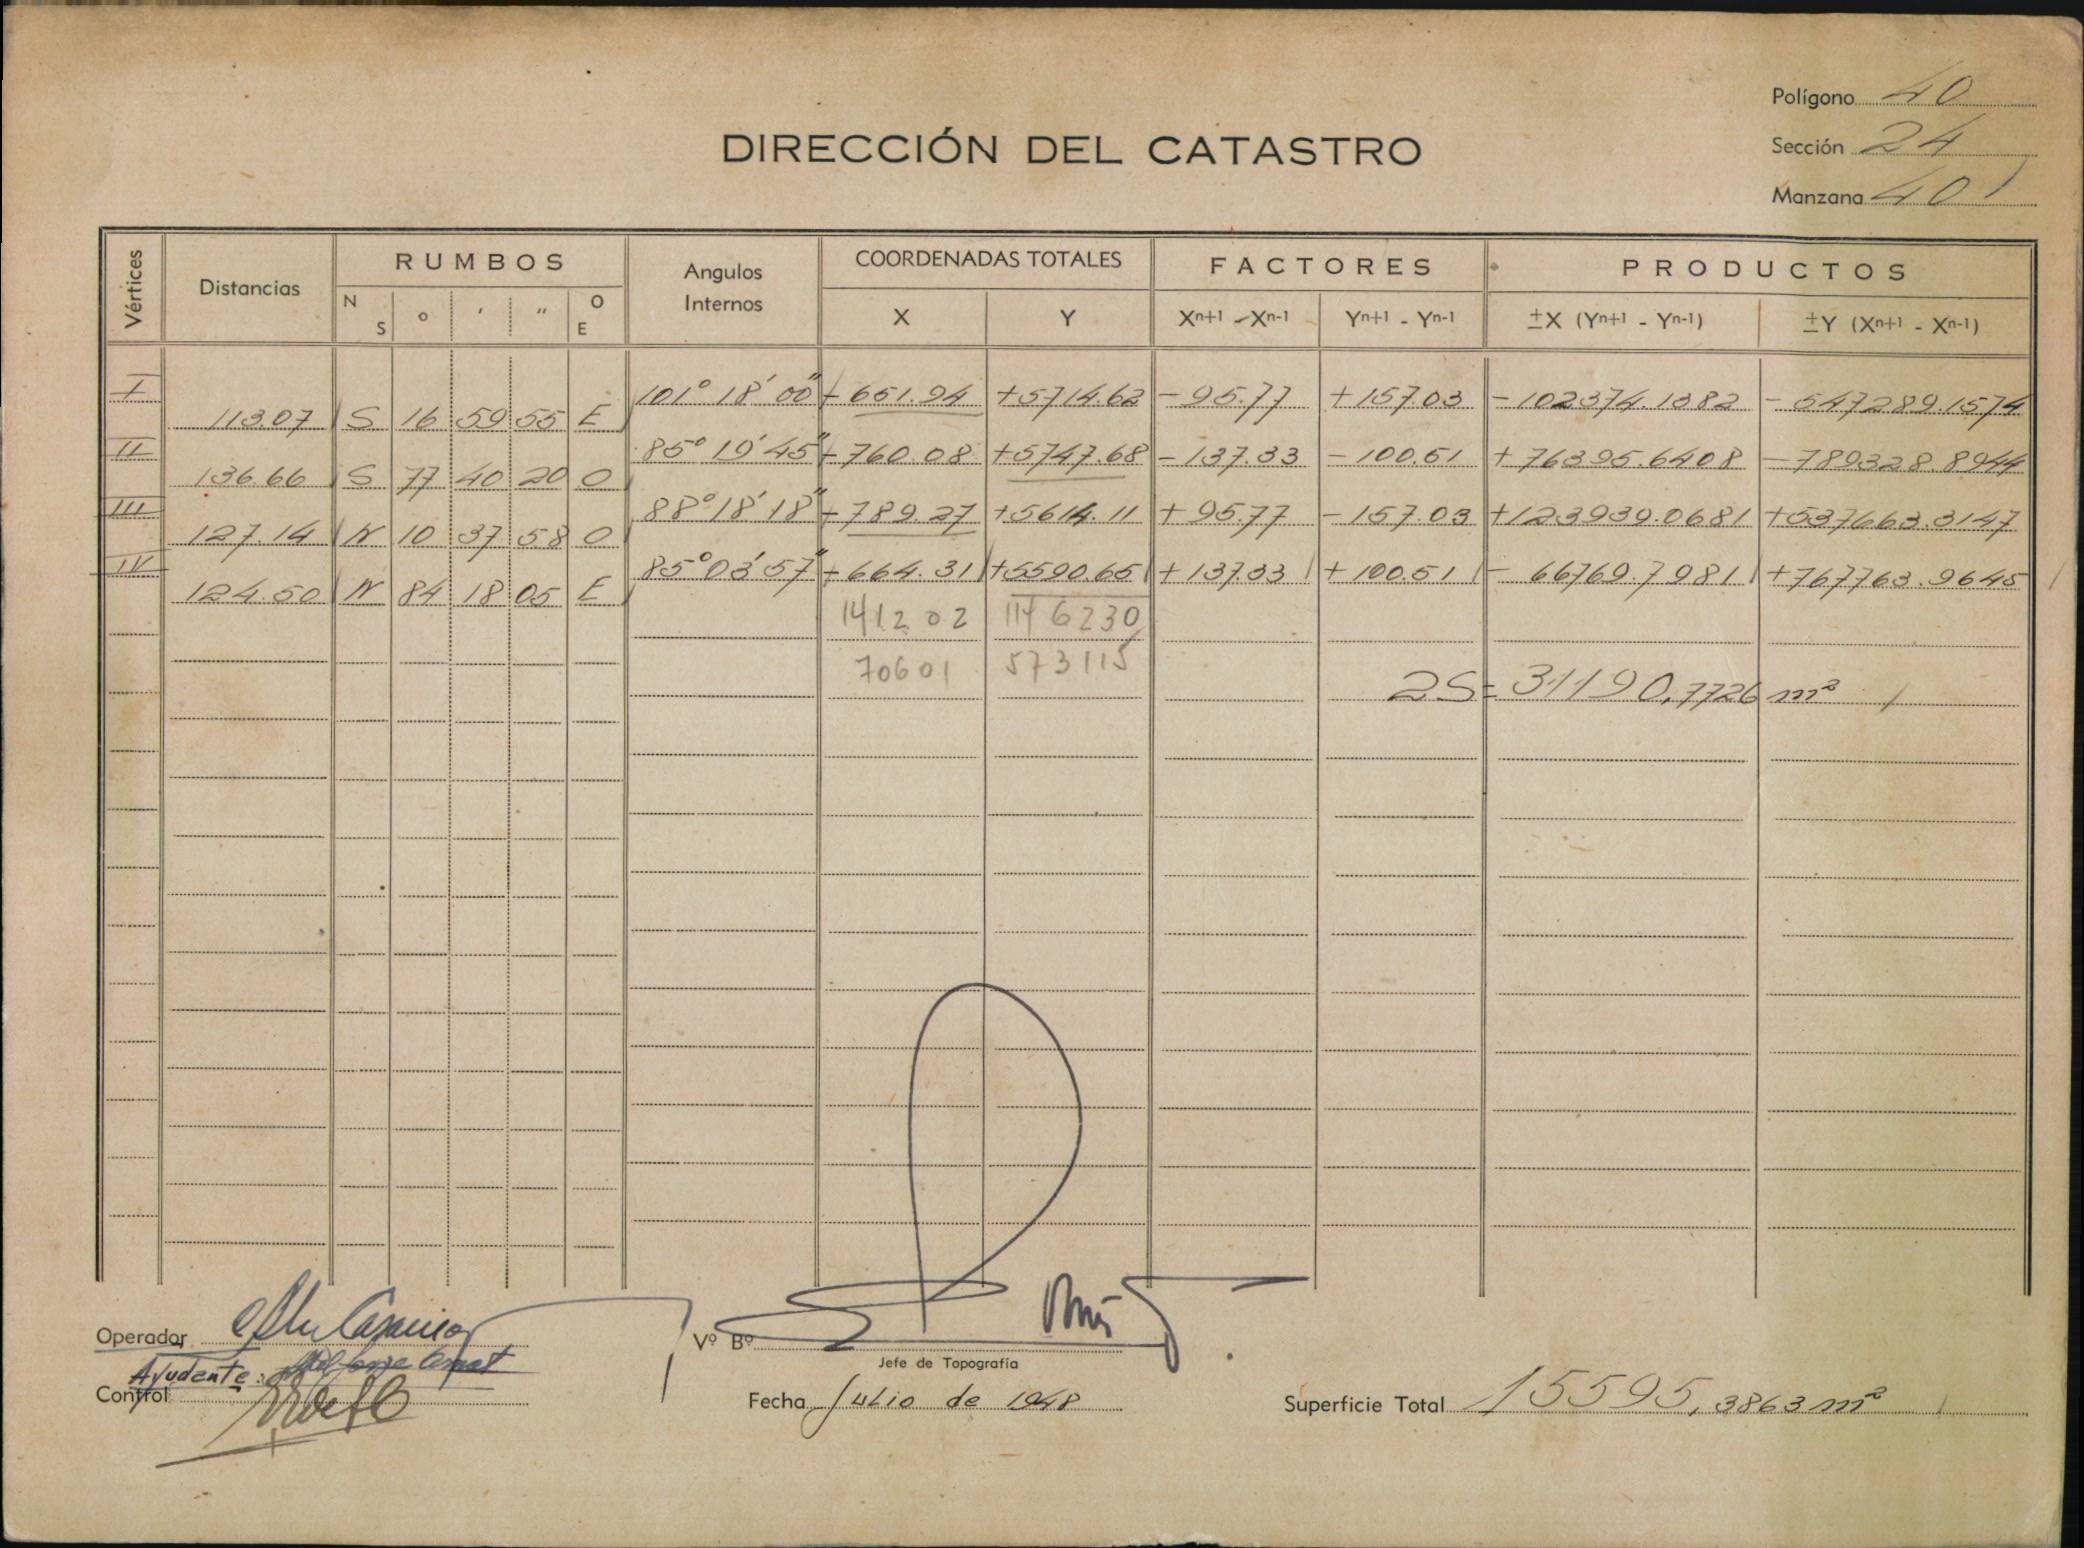 Polígono 40
DIRECCIÓN DEL CATASTRO
Sección 24
Manzana 401
Vértices Distancias RUMBOS Angulos Internos COORDENADAS TOTALES FACTORES PRODUCTOS
N S ° ′ ″ O E X Y Xn+1 - Xn-1 Yn+1 - Yn-1 ±X (Yn+1 - Yn-1) ±Y (Xn+1 - Xn-1)
I 101° 18′ 00″ - 651.94 +5714.62 - 95.77 + 157.03 - 102374.1382 - 547289.1574
113.07 S 16 59 55 E
II 85° 19′ 45″ - 760.08 +5747.68 - 137.33 - 100.51 + 76395.6408 - 789328.8944
136.66 S 77 40 20 O
III 88° 18′ 18″ - 789.27 +5614.11 + 95.77 - 157.03 +123939.0681 +537663.3147
127.14 N 10 37 58 O
IV 85° 03′ 57″ - 664.31 +5590.65 + 137.33 + 100.51 - 66769.7981 +767763.9645
124.50 N 84 18 05 E
141202 1146230
70601 573115
2S = 31190,7726 m²
Operador
Vº Bº
Jefe de Topografía
Ayudente:
Control
Fecha Julio de 1948
Superficie Total 15595,3863 m²